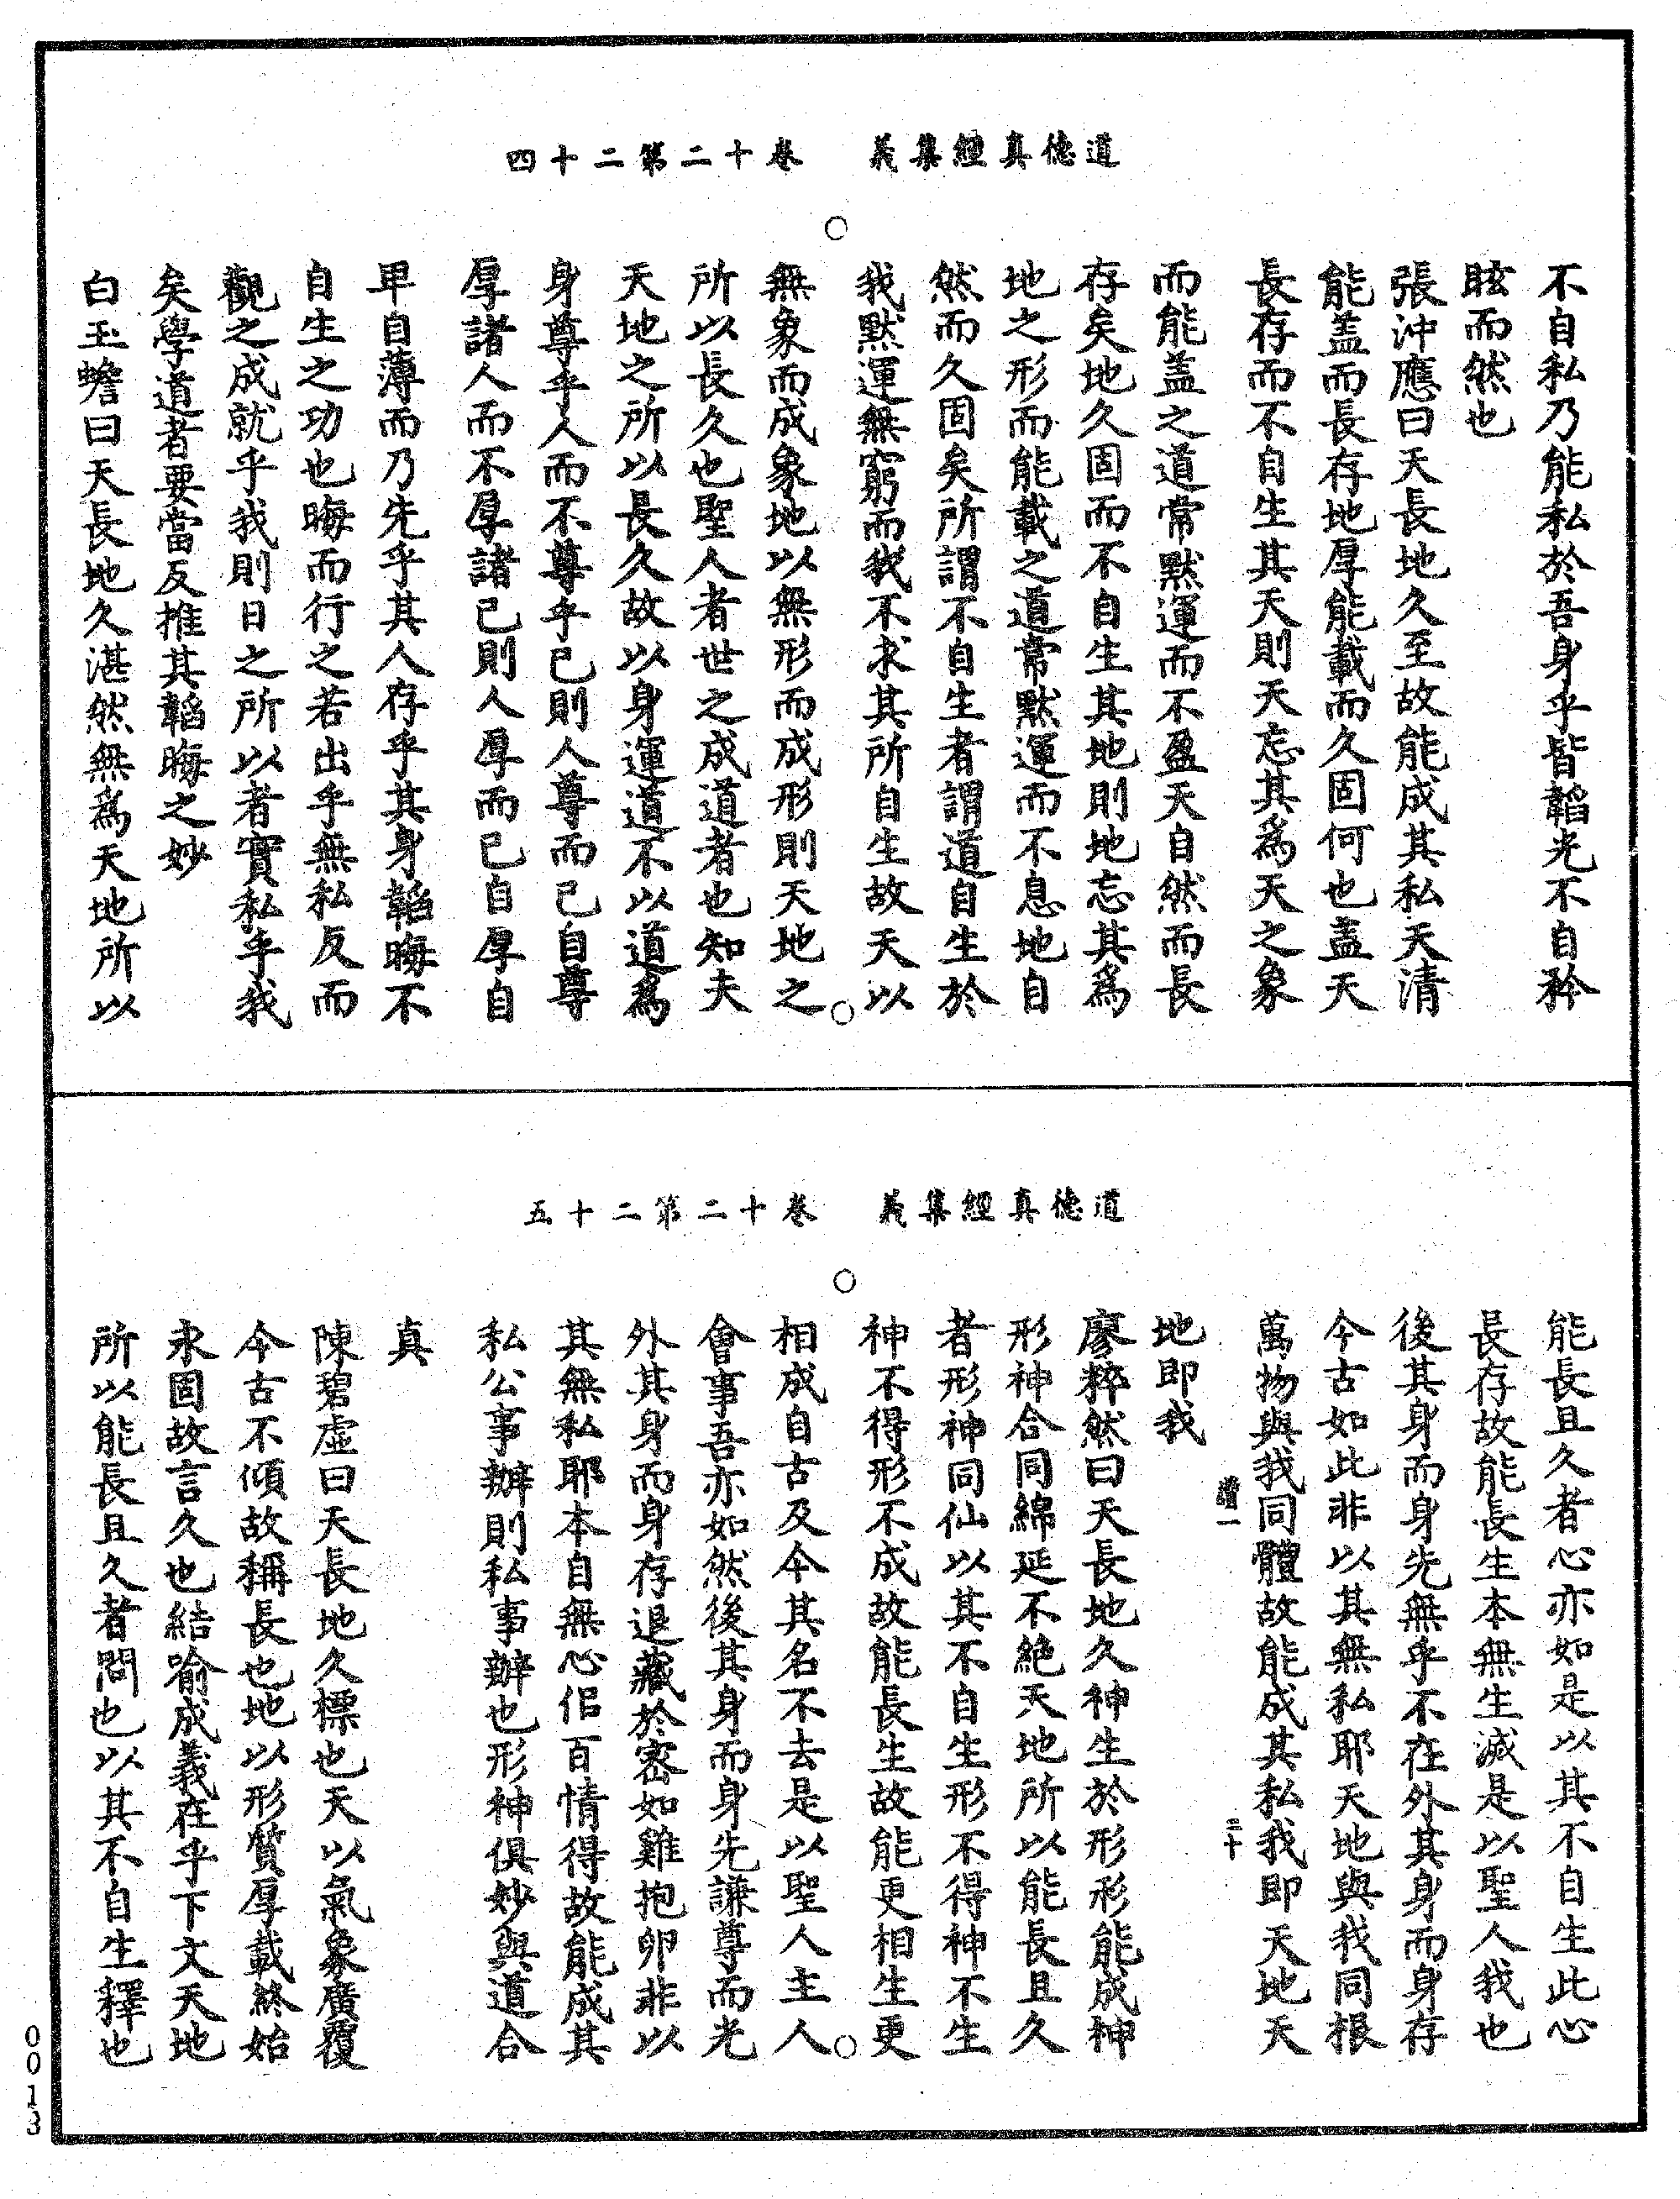 道德真經集義　卷十二第二十四
不自私乃能私於吾身乎皆韜光不自矜
眩而然也
張沖應曰天長地久至故能成其私天清
能盖而長存地厚能載而久固何也盖天
長存而不自生其天則天忘其為天之象
而能盖之道常默運而不盈天自然而長
存矣地久固而不自生其地則地忘其為
地之形而能載之道常默運而不息地自
然而久固矣所謂不自生者謂道自生於
我默運無窮而我不求其所自生故天以
無象而成象地以無形而成形則天地之
所以長久也聖人者世之成道者也知夫
天地之所以長久故以身運道不以道為
身尊乎人而不尊乎己則人尊而己自尊
厚諸人而不厚諸己則人厚而己自厚自
卑自薄而乃先乎其人存乎其身韜晦不
自生之功也晦而行之若出乎無私反而
觀之成就乎我則日之所以者實私乎我
矣學道者要當反推其韜晦之妙
白玉蟾曰天長地久湛然無為天地所以
道德真經集義　卷十二第二十五
能長且久者心亦如是以其不自生此心
長存故能長生本無生滅是以聖人我也
後其身而身先無乎不在外其身而身存
今古如此非以其無私耶天地與我同根
萬物與我同體故能成其私我即天地天
地即我
廖粹然曰天長地久神生於形形能成神
形神合同綿延不絕天地所以能長且久
者形神同仙以其不自生形不得神不生
神不得形不成故能長生故能更相生更
相成自古及今其名不去是以聖人主人
會事吾亦如然後其身而身先謙尊而光
外其身而身存退藏於密如雞抱卵非以
其無私耶本自無心佀百情得故能成其
私公事辦則私事辦也形神俱妙與道合
真
陳碧虛曰天長地久標也天以氣象廣覆
今古不傾故稱長也地以形質厚載終始
永固故言久也結喻成義在乎下文天地
所以能長且久者問也以其不自生釋也
0013